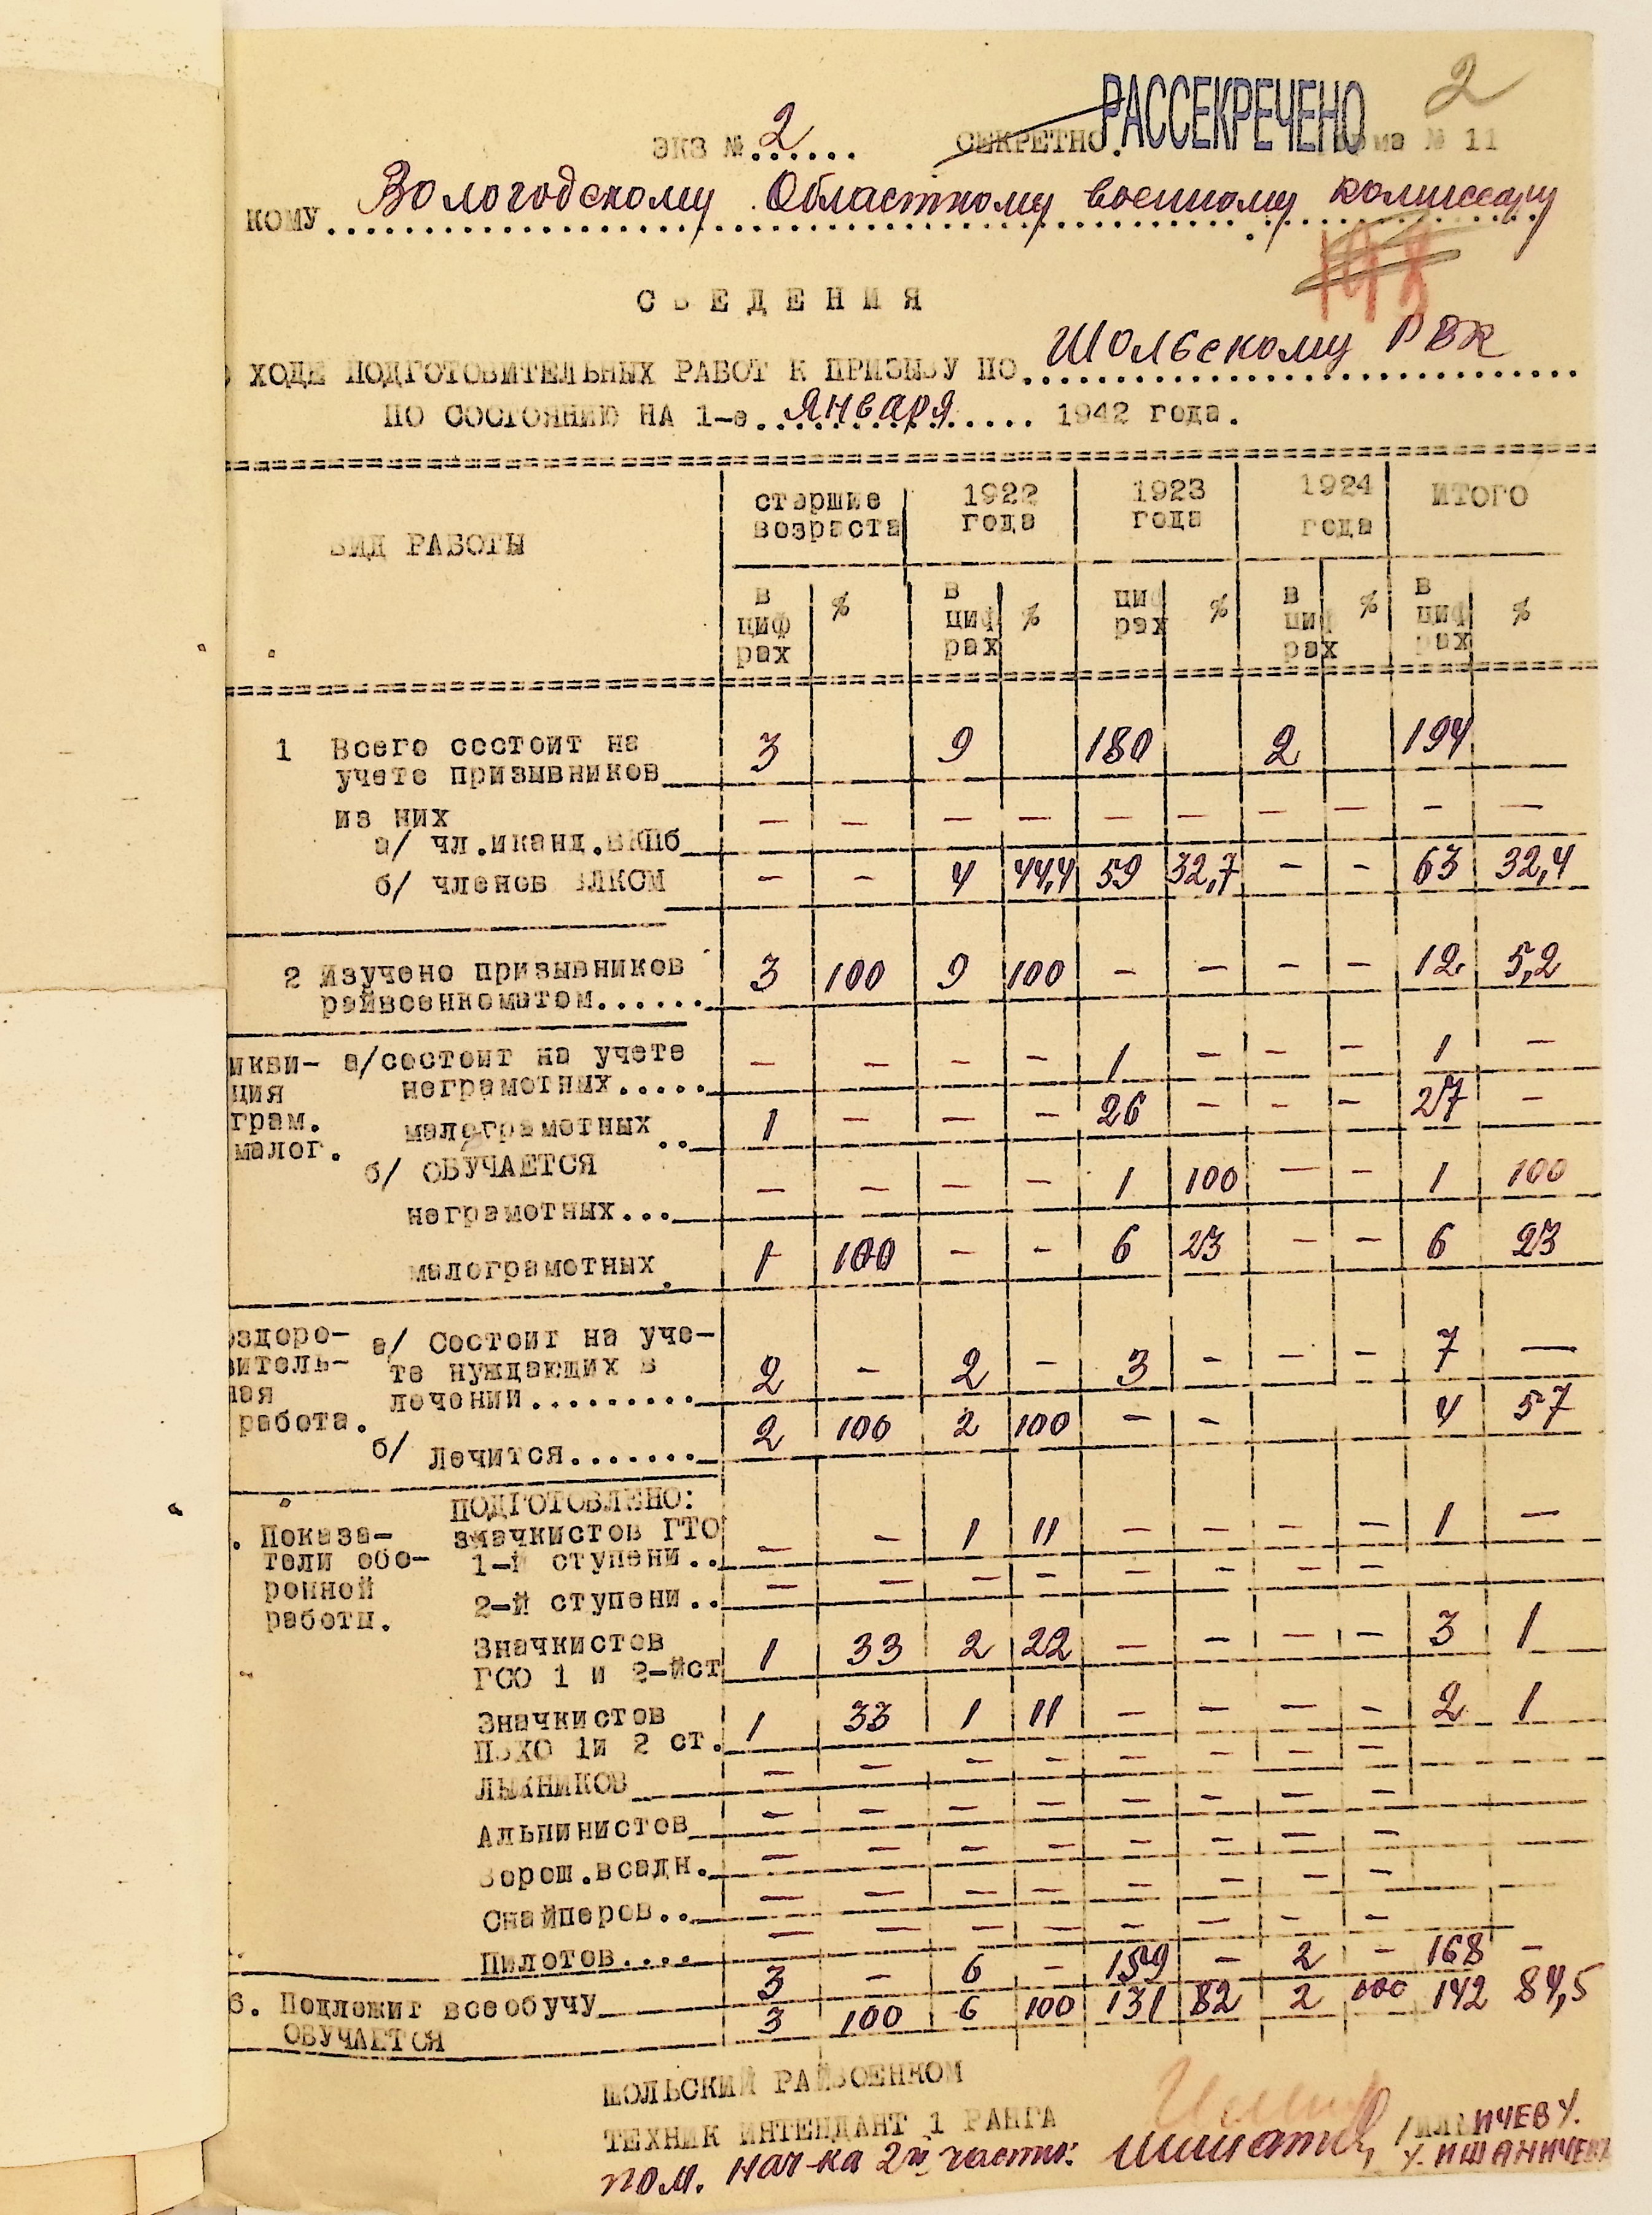 2
РАССЕКРЕЧЕНО
ЭКЗ № 2...... СЕКРЕТНО. № 11
КОМУ Вологодскому Областному военному комиссару
198
СВЕДЕНИЯ
О ХОДЕ ПОДГОТОВИТЕЛЬНЫХ РАБОТ К ПРИЗЫВУ ПО Шольскому РВК
ПО СОСТОЯНИЮ НА 1-е Января 1942 года.
ВИД РАБОТЫ старшие возраста 1922 года 1923 года 1924 года ИТОГО
в цифрах % в цифрах % цифрах % в цифрах % в цифрах %
1 Всего состоит на
учете призывников 3 9 180 2 194
из них
а/ чл.иканд.ВКПб — — — — — — — — — —
б/ членов ВЛКСМ — — 4 44,4 59 32,7 — — 63 32,4
2 Изучено призывников
райвоенкоматом...... 3 100 9 100 — — — — 12 5,2
икви- а/состоит на учете
ция неграмотных..... — — — — 1 — — — 1 —
грам. малограмотных .. 1 — — — 26 — — — 27 —
малог. б/ ОБУЧАЕТСЯ
неграмотных... — — — — 1 100 — — 1 100
малограмотных. 1 100 — — 6 23 — — 6 23
оздоро- а/ Состоит на уче-
витель- те нуждающих в
ная лечении......... 2 — 2 — 3 — — — 7 —
работа. б/ Лечится....... 2 100 2 100 — — 4 57
ПОДГОТОВЛЕНО:
. Показа- значкистов ГТО
тели обо- 1-й ступени.. — — 1 11 — — — — 1 —
ронной 2-й ступени.. — — — — — — — —
работы.
Значкистов
ГСО 1 и 2-йст 1 33 2 22 — — — — 3 1
Значкистов
ПВХО 1и 2 ст. 1 33 1 11 — — — — 2 1
ЛЫЖНИКОВ — — — — — — — —
Альпинистов — — — — — — — —
Ворош.всадн. — — — — — — — —
Снайперов.. — — — — — — — —
Пилотов.... — — — — — — — —
6. Подлежит всеобучу 3 — 6 — 159 — 2 — 168 —
ОБУЧАЕТСЯ 3 100 6 100 131 82 2 100 142 84,5
ШОЛЬСКИЙ РАЙВОЕНКОМ
ТЕХНИК ИНТЕНДАНТ 1 РАНГА
пом. нач-ка 2й части: